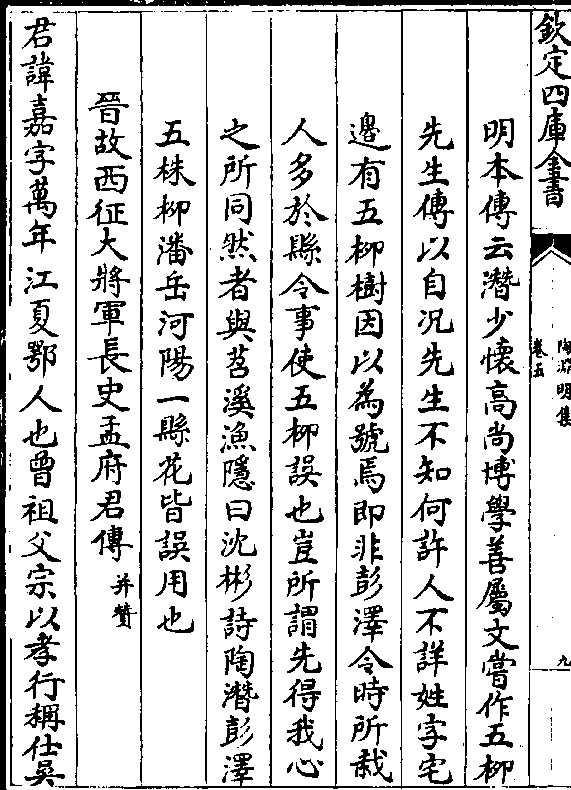 欽定四庫全書
陶淵明集
卷五
九
明本傳云潛少懷高尚博學善屬文嘗作五柳
先生傳以自况先生不知何許人不詳姓字宅
邉有五柳樹因以為號焉即非彭澤令時所栽
人多於縣令事使五柳誤也豈所謂先得我心
之所同然者與苕溪漁隱曰沈彬詩陶潛彭澤
五株柳潘岳河陽一縣花皆誤用也
晉故西征大將軍長史孟府君傳并贊
君諱嘉字萬年江夏鄂人也曾祖父宗以孝行稱仕吳